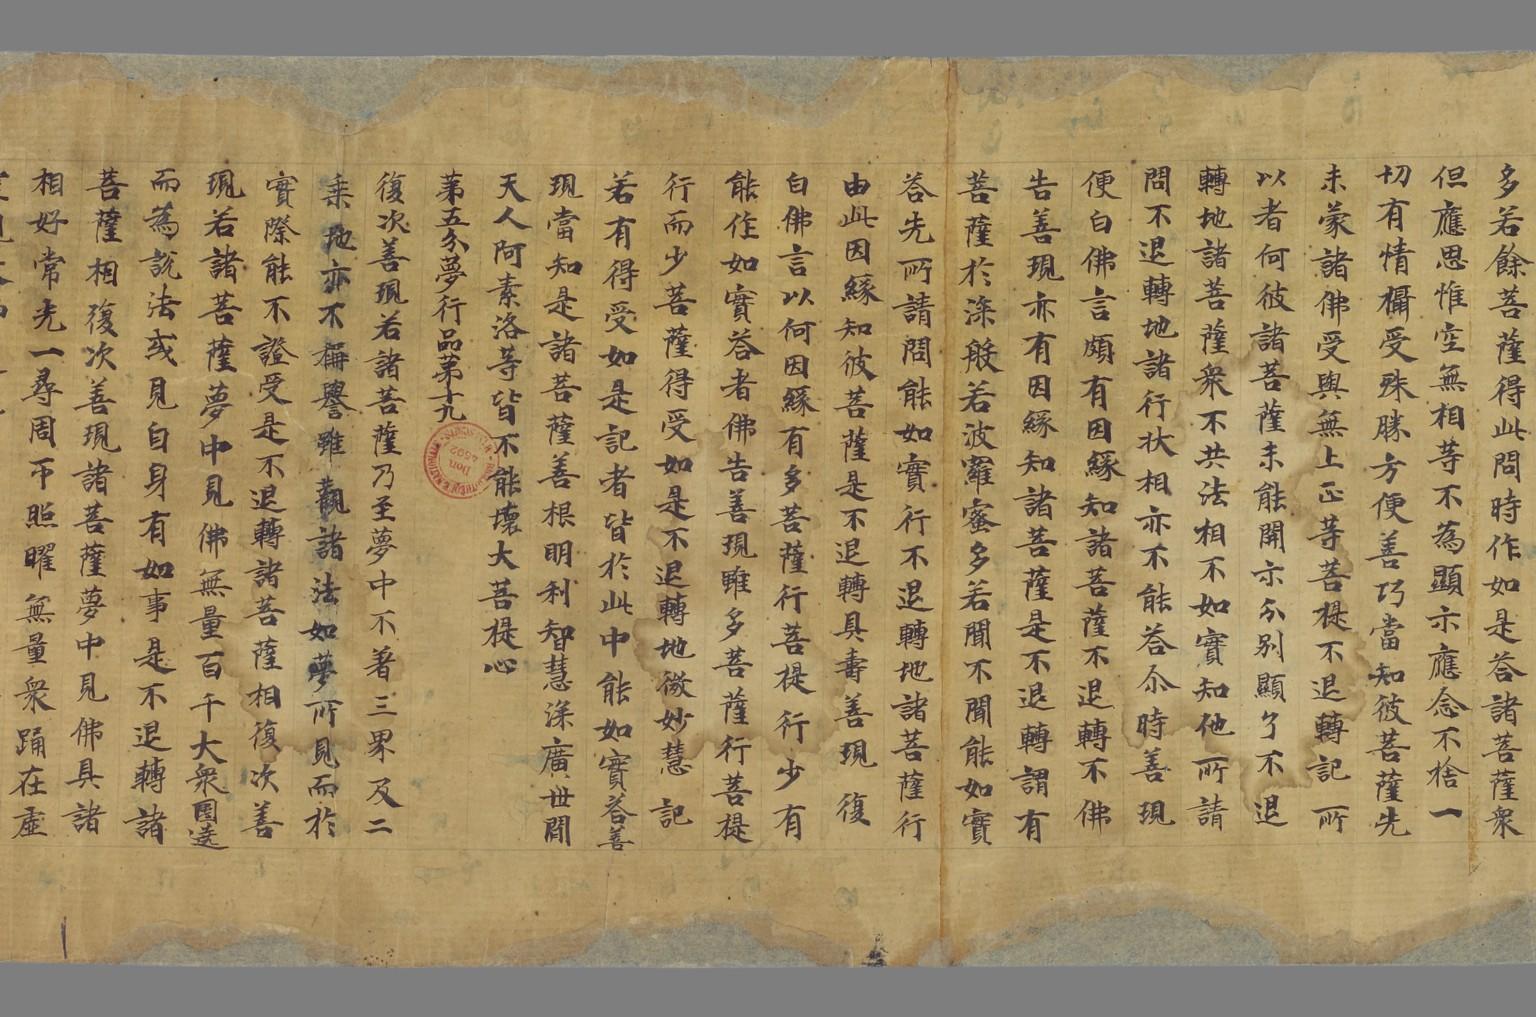 多若餘菩薩得此問時作如是答諸菩薩衆
但應思惟空無相等不為顯示應念不捨一
切有情攝受殊勝方便善巧當知彼菩薩先
未蒙諸佛受與無上正等菩提不退轉記所
以者何彼諸菩薩未能開示分別顯了不退
轉地諸菩薩衆不共法相不如實知他所請
問不退轉地諸行狀相亦不能答尒時善現
便白佛言頗有因緣知諸菩薩不退轉不佛
告善現亦有因緣知諸菩薩是不退轉謂有
菩薩於深般若波羅蜜多若聞不聞能如實
答先所請問能如實行不退轉地諸菩薩行
由此因緣知彼菩薩是不退轉具壽善現復
白佛言以何因緣有多菩薩行菩提行少有
能作如實答者佛告善現雖多菩薩行菩提
行而少菩薩得受如是不退轉地微妙慧記
若有得受如是記者皆於此中能如實答善
現當知是諸菩薩善根明利智慧深廣世間
天人阿素洛等皆不能壞大菩提心
第五分夢行品第十九
復次善現若諸菩薩乃至夢中不著三界及二
乘地亦不稱譽雖觀諸法如夢所見而於
實際能不證受是不退轉諸菩薩相復次善
現若諸菩薩夢中見佛無量百千大衆圍遶
而為說法或見自身有如事是不退轉諸
菩薩相復次善現諸菩薩夢中見佛具諸
相好常光一尋周帀照曜無量衆踊在虛
BIBLIOTHÈQUE NATIONALE MANUSCRITS
Don
4502